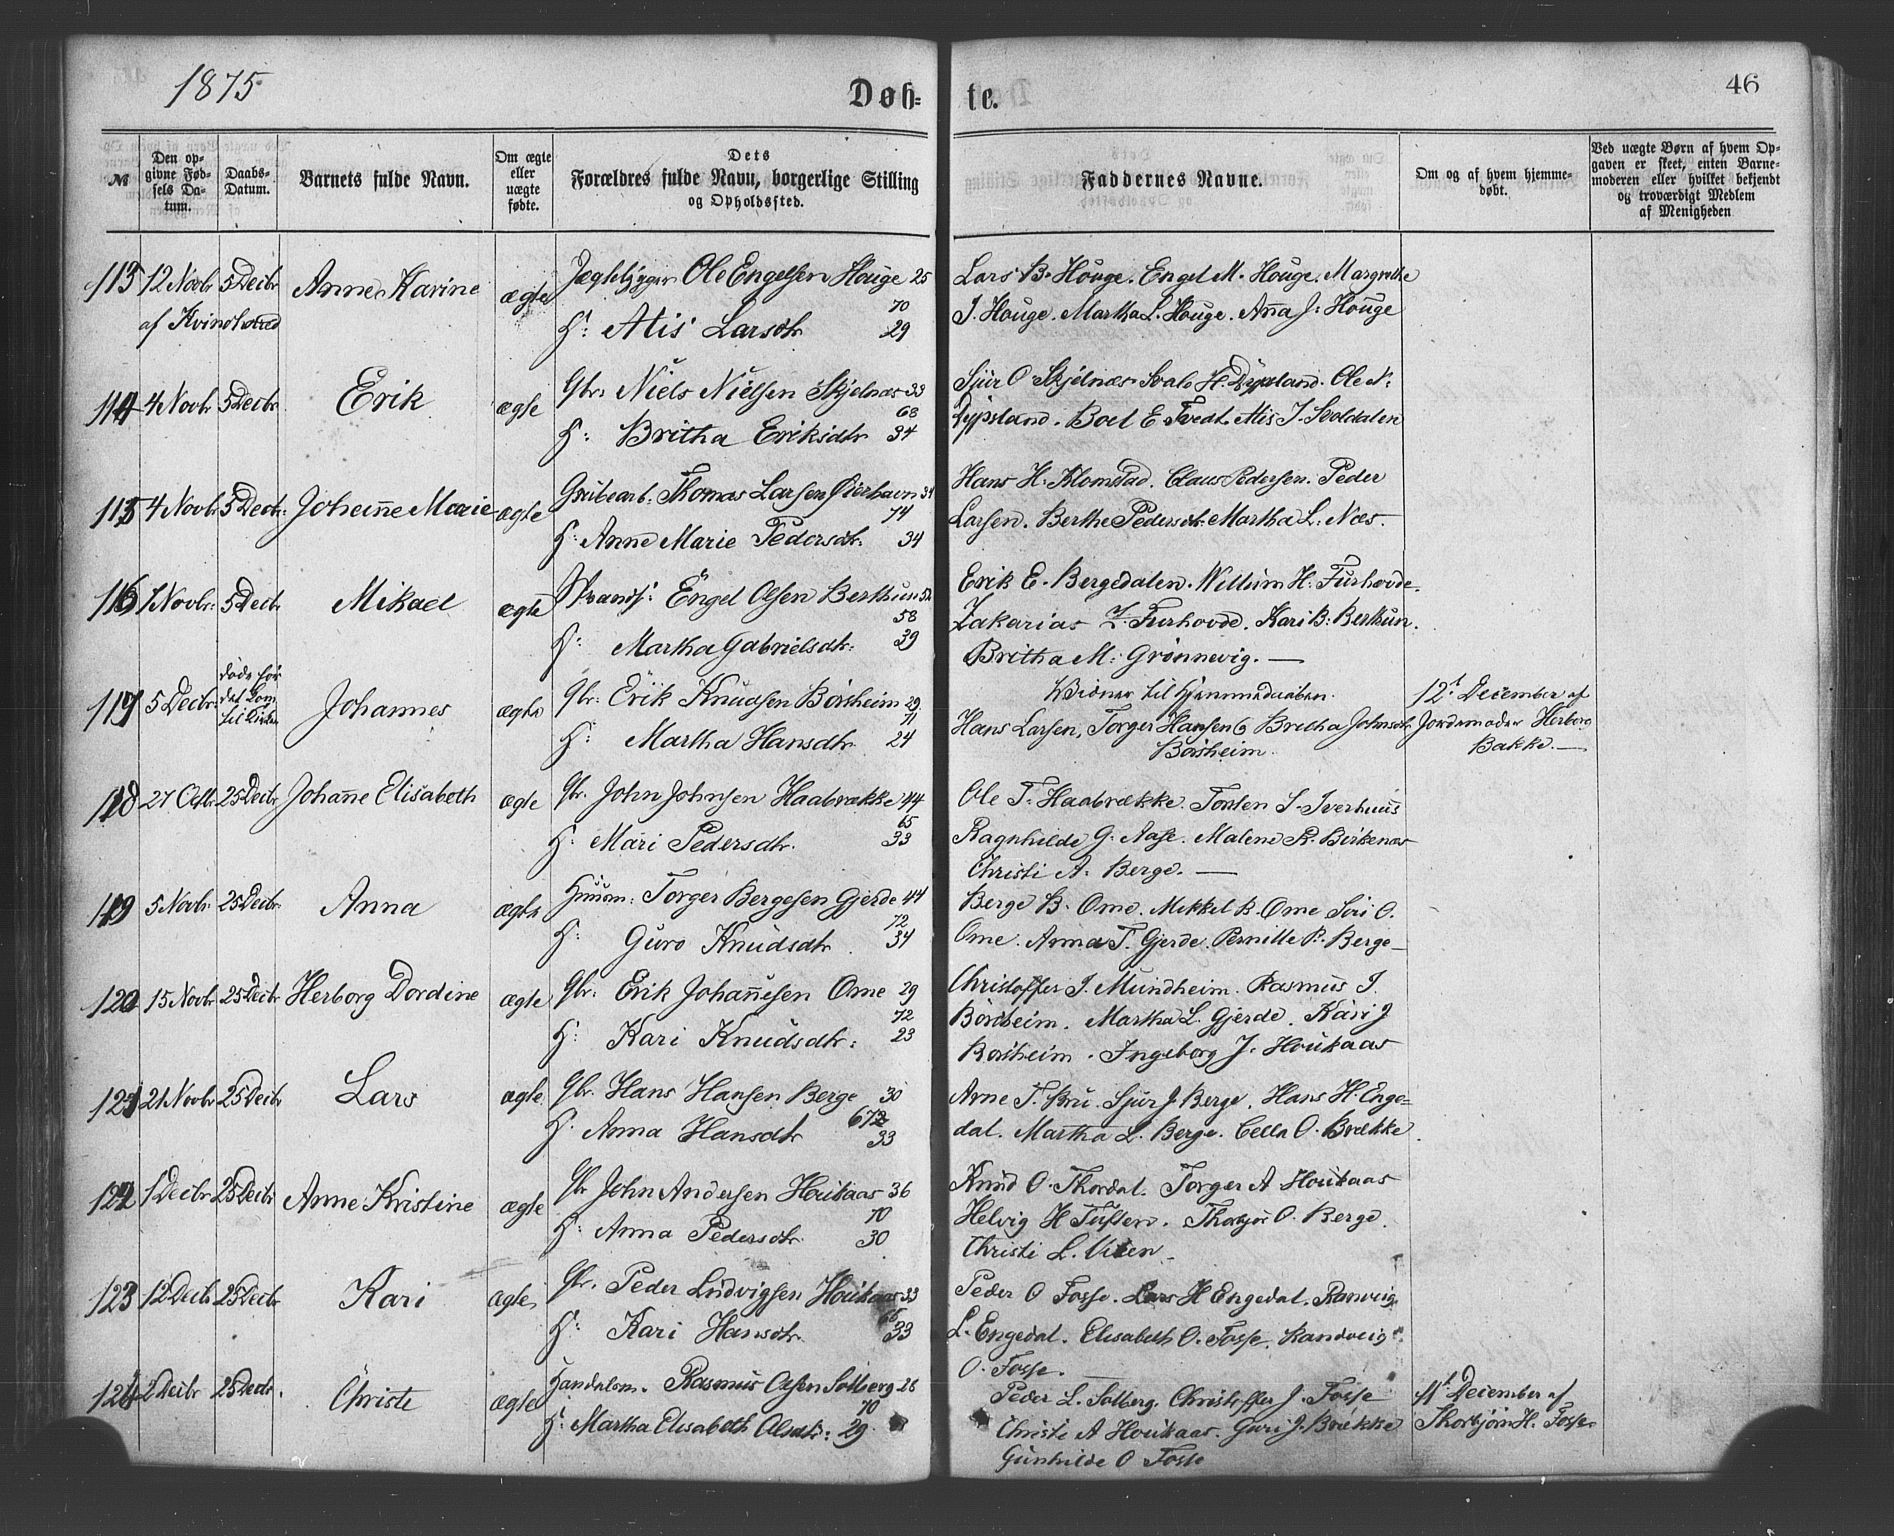 1875
Døb-te.
46
№
Den opgivne Fødsels Datum.
Daabs-Datum.
Barnets fulde Navn.
Om ægte eller uægte fødte.
Dets Forældres fulde Navn, borgerlige Stilling og Opholdssted.
Faddernes Navne.
Om og af hvem hjemmedøbt.
Ved uægte Børn af hvem Opgaven er skeet, enten Barnemoderen eller hvilket bekjendt og troværdigt Medlem af Menigheden
113 12 Novbr 5 Decbr Anne Karine ægte Jægtebygger Ole Engelsen Houge 25
af Kvindherred
70
H: Alis Larsdtr 29
Lars B. Houge. Engel M. Houge. Margrethe
J. Houge. Martha L. Houge. Anna J: Houge
114 4 Novbr 5 Decbr Erik ægte Gbr: Niels Nielsen Skjelnæs 33
68
H: Britha Eriksdtr 34
Sjur O Skjelnæs H. Dypsland. Ole N:
Dypsland. Boel E Tvedt. Alis J.
115 4 Novbr 5 Decbr: Johanne Marie ægte Grubearb: Thomas Larsen Øierhavn 34
74
H: Anne Marie Pedersdtr: 34
Hans H. Klomstad. Claus Pedersen. Peder
Larsen. Berthe Pedersdtr. Martha L. Næs.
116 1 Novbr: 5 Decbr Mikael ægte Strands: Engel Olsen Berthun 52
58
H: Martha Gabrielsdtr: 39
Erik E. Bergedalen. Willum H. Furhovde.
Zakarias Z. Furhovde. Kari B: Berthun.
Britha M: Grønnevig. —
117 5 Decbr: døde før det kom til Kirken Johannes ægte Gbr: Erik Knudsen Børsheim 29
71
H: Martha Hansdtr 24
Vidner til Hjemmedaaben.
Hans Larsen, Torger Hansen & Britha Johnsdtr
Børsheim.
12t December af
Jordemoder Herborg
Bakke. —
118 27 Octbr 25 Decbr Johanne Elisabeth ægte Gbr. John Johnsen Haabrække 44
65
H: Mari Pedersdtr. 33
Ole T. Haabrække. Torsten S. Iverhuus
Ragnhilde G. Aase. Malene R. Birkenæs
Christi A. Berge. —
119 5 Novbr 25 Decbr. Anna ægte Huusm: Torger Bergesen Gjerde 44
72
H: Guro Knudsdtr. 34
Berge B. Ome. Mikkel B. Ome Siri O.
Ome. Anna T. Gjerde. Pernille P. Berge —
120 15 Novbr 25 Decbr Herborg Dordine ægte Gbr: Erik Johannesen Ome 29
72
H: Kari Knudsdtr: 23
Christoffer J. Mundheim. Rasmus J.
Børsheim. Martha L. Gjerde. Kari J
Børsheim. Ingeborg J. Houkaas
121 21 Novbr 25 Decbr Lars ægte. Gbr. Hans Hansen Berge 30
H. Anna Hansdtr 33
Arne T. Bru. Sjur J Berge. Hans H. Enge=
dal. Martha L. Berge. Cella O. Brække.
122 1 Decbr 25 Decbr Anne Kristine ægte Gbr John Andersen Houkaas 36
70
H: Anna Pedersdtr 30
Knud O. Thordal. Torger A Houkaas
Helvig H Tuften. Thorbjør O. Berge.
Christi L.
123 12 Decbr 25 Decbr Kari ægte Gbr. Peder Ludvigsen Houkaas 33
H: Kari Hansdtr 33
Peder O Fosse. Lars H Engedal. Ranveig
L. Engedal. Elisabeth O. Fosse. Randveig
O. Fosse.
124 2 Decbr 25 Decbr. Christi ægte Handelsm. Rasmus Olsen Solberg 28
70
H: Martha Elisabeth Olsdtr: 29
Peder L. Solberg. Christoffer J. Fosse
Christi A Houkaas. Guri J. Brække
Gunhilde O Fosse
11t December af
Thorbjørn H. Fosse